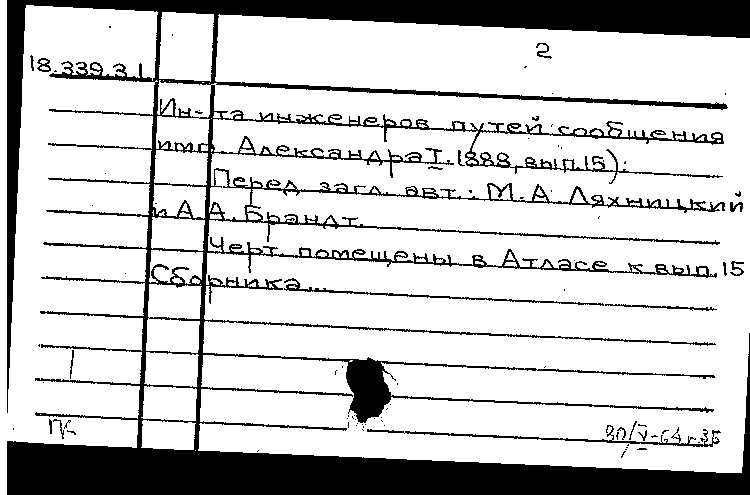 2
18.339.3.1
Ин-та инженеров путей сообщения
имп. Александра I. 1888, вып. 15).
Перед загл. авт.: М.А. Ляхницкий
и А.А. Брандт.
Черт. помещены в Атласе к вып. 15
Сборника...